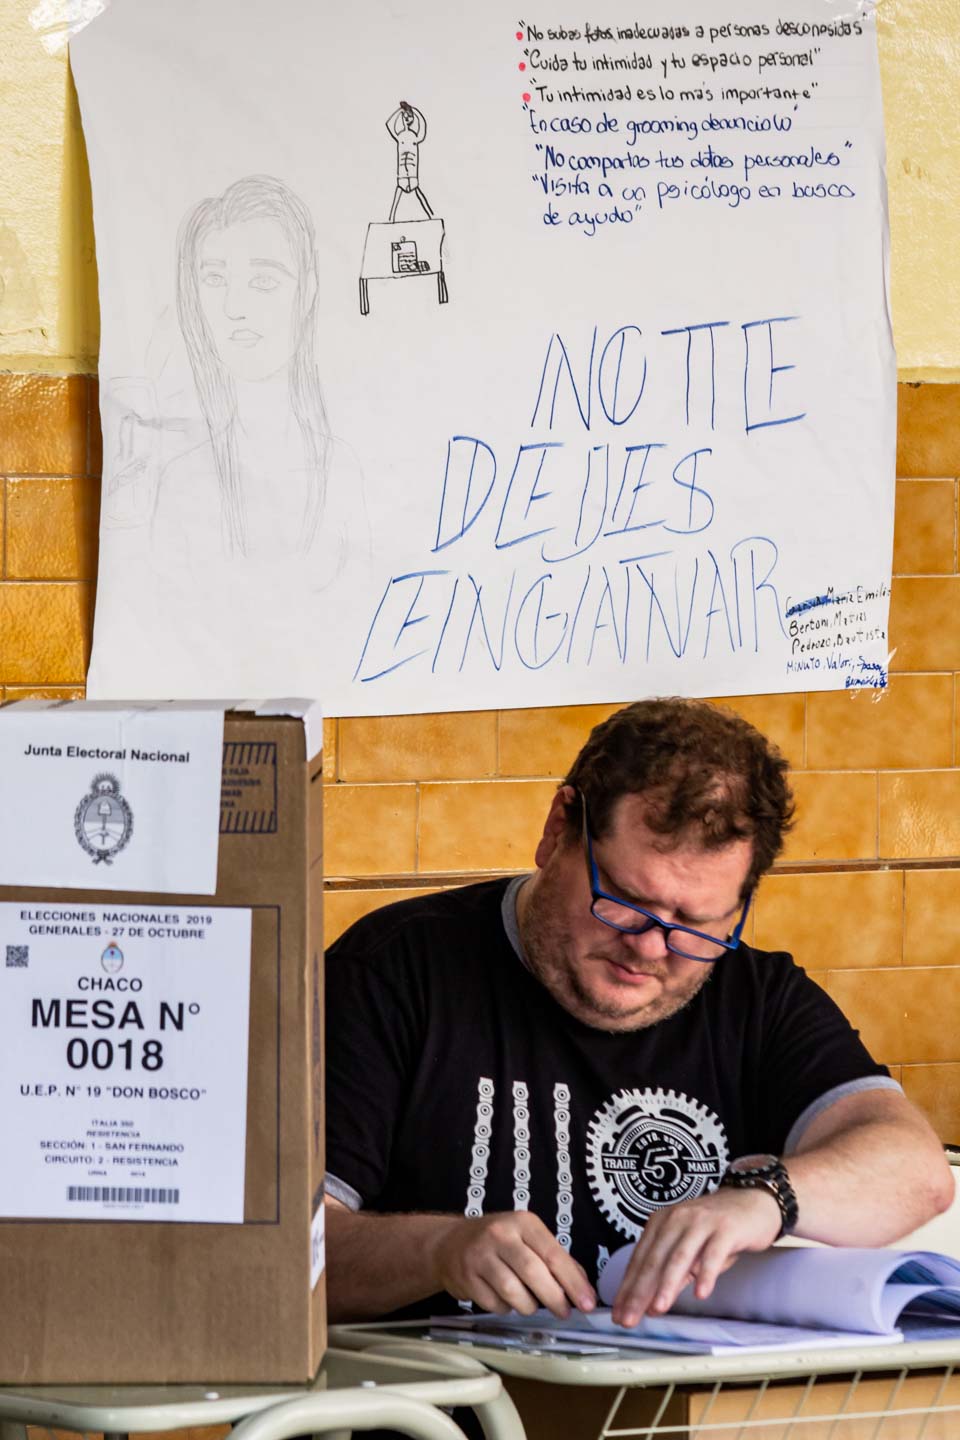 "No subas fotos inadecuadas a personas desconosidas"
"Cuida tu intimidad y tu espacio personal"
"Tu intimidad es lo más importante"
"En caso de grooming denuncialo"
"No compartas tus datos personales"
"Visita a un psicólogo en busca
de ayuda"
NO TE
DEJES
ENGAÑAR
María Emilia
Bertoni, Matias
Pedrozo, Bautista
MINUTO, Valor,
Junta Electoral Nacional
ELECCIONES NACIONALES 2019
GENERALES - 27 DE OCTUBRE
CHACO
MESA N°
0018
U.E.P. N° 19 "DON BOSCO"
ITALIA 350
RESISTENCIA
SECCIÓN: 1 - SAN FERNANDO
CIRCUITO: 2 - RESISTENCIA
URNA 0018
ESTD.
TRADE 5 MARK
STR. A FONDO